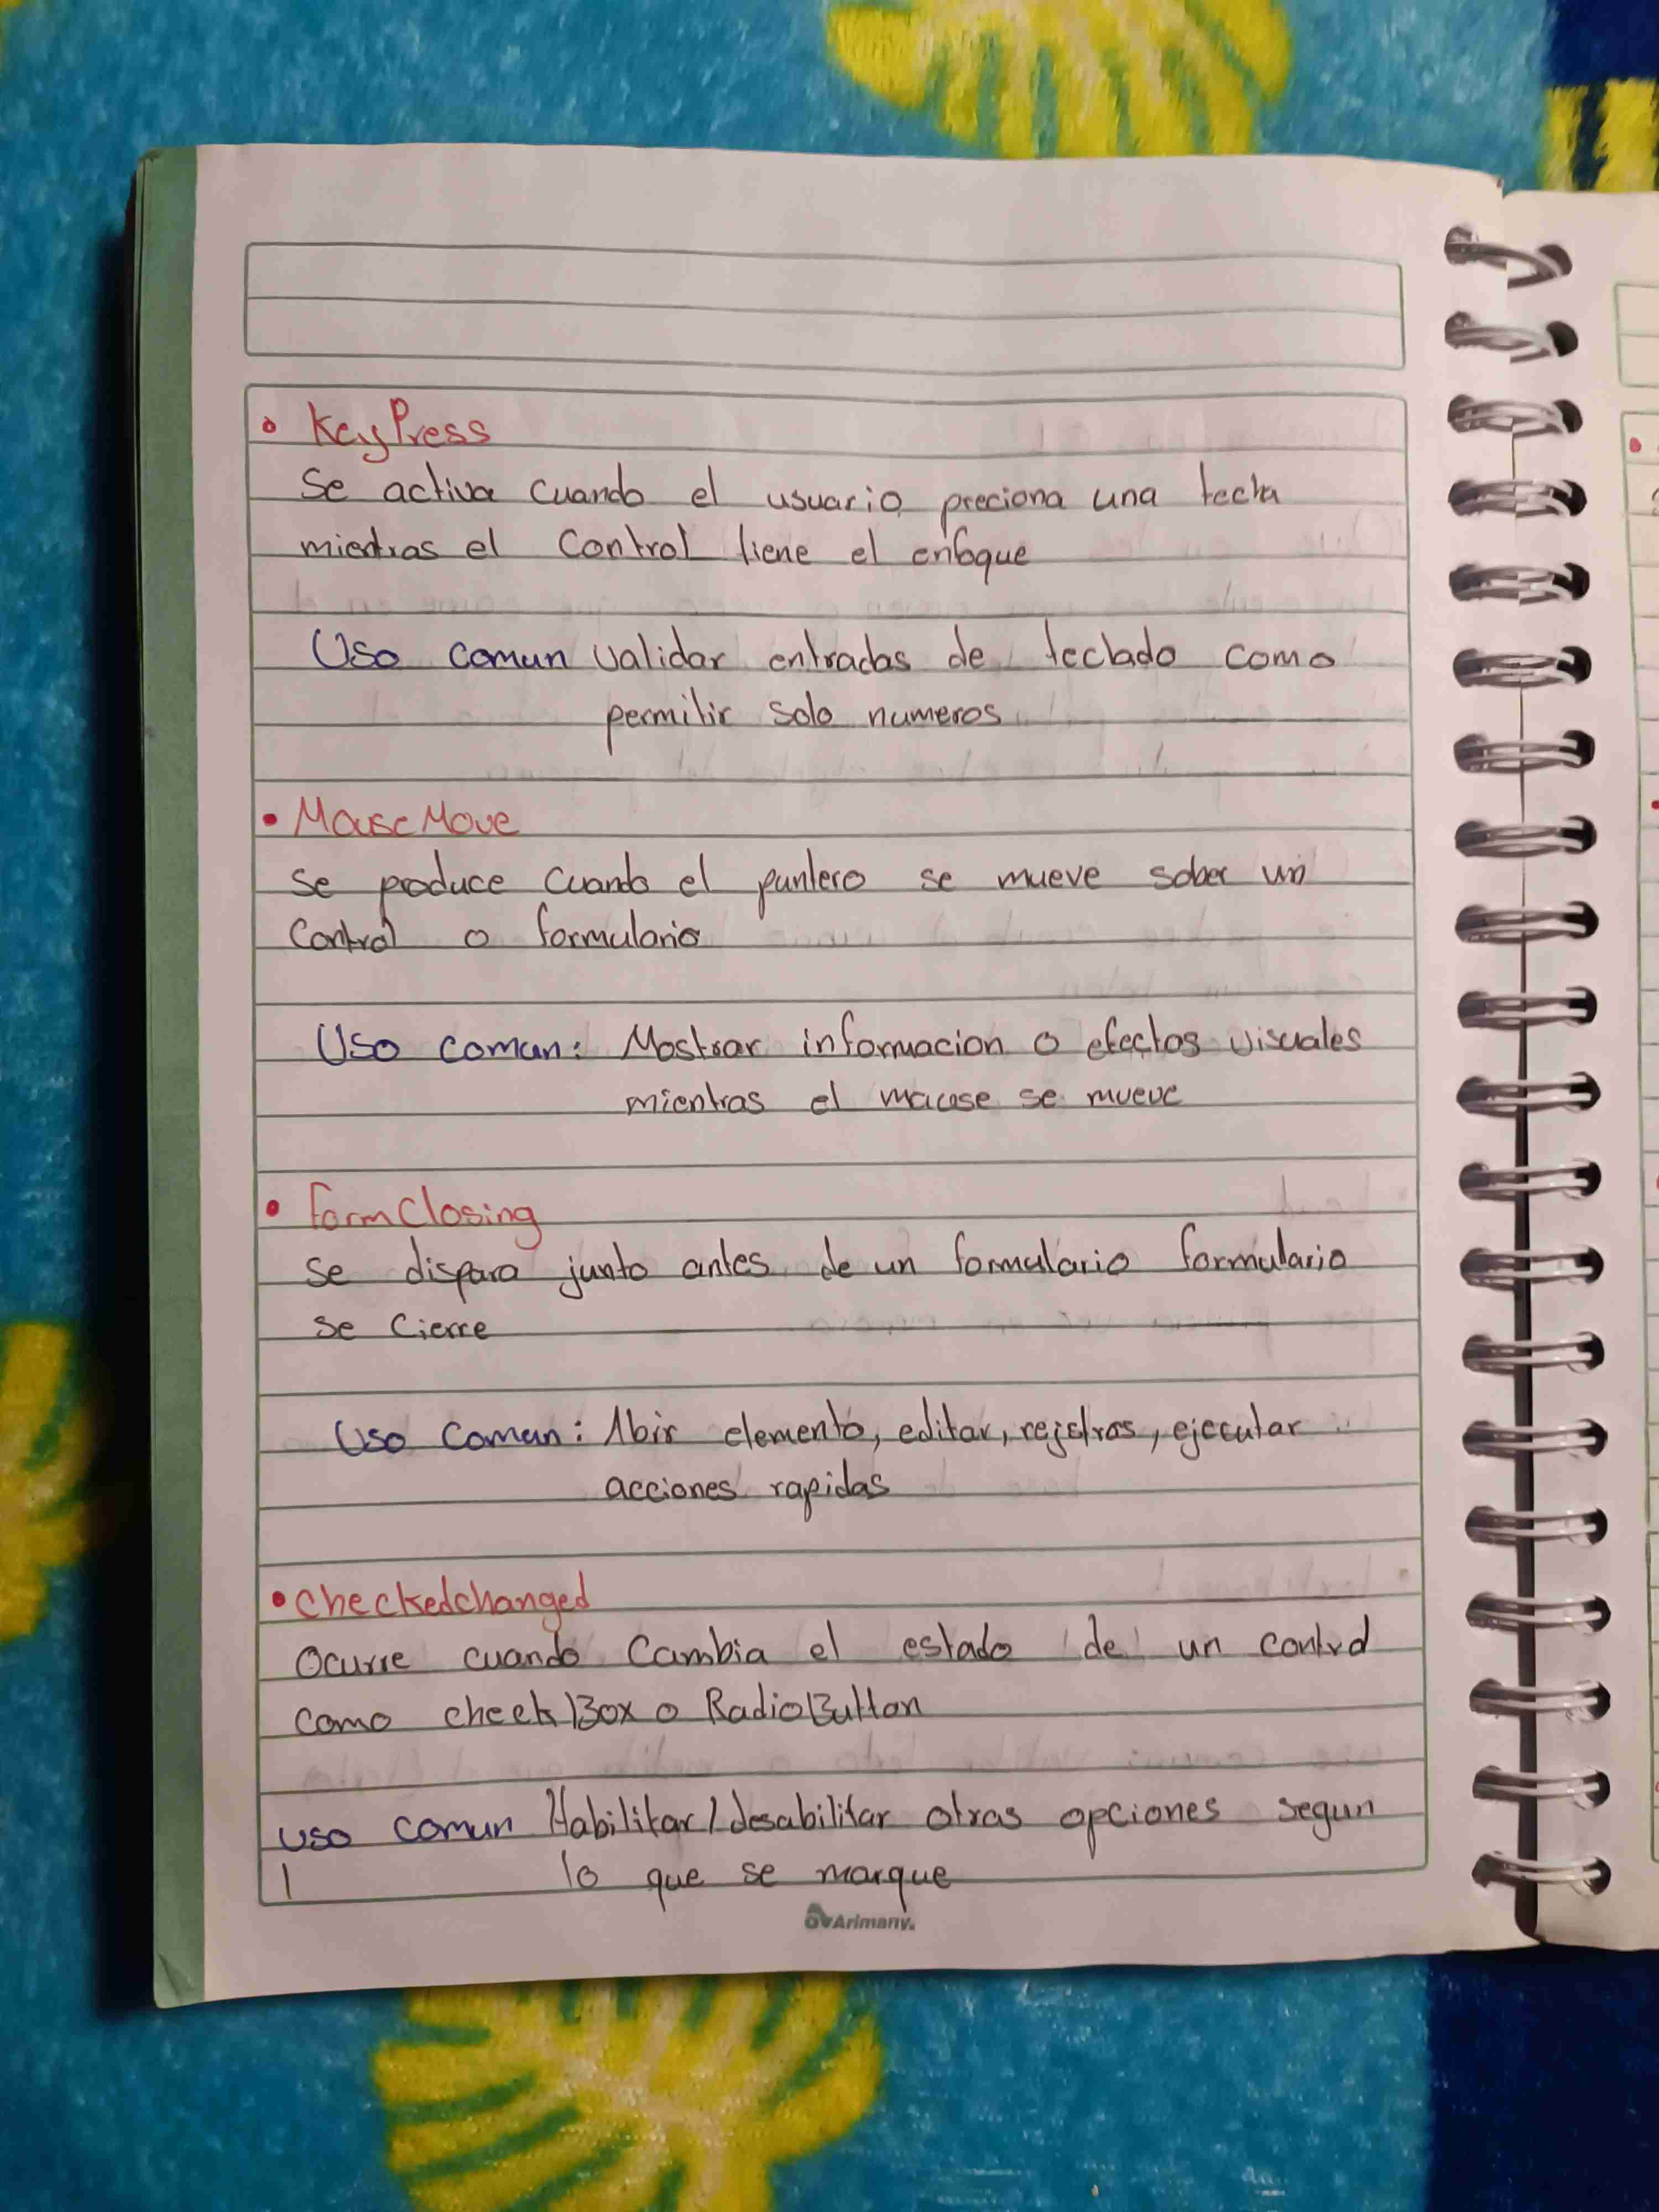 • KeyPress
Se activa cuando el usuario preciona una tecla
mientras el Control tiene el enfoque
Uso comun validar entradas de teclado como
permitir solo numeros
• MouseMove
Se produce cuando el puntero se mueve sober un
Control o formulario
Uso comun: Mostrar informacion o efectos visuales
mientras el mause se mueve
• FormClosing
Se dispara junto antes de un formulario formulario
se cierre
Uso comun: Abir elemento, editar, registros, ejecutar
acciones rapidas
• checkedchanged
Ocurre cuando Cambia el estado de un control
como checkBox o RadioButton
uso comun Habilitar/desabilitar otras opciones segun
lo que se marque
Arimany.